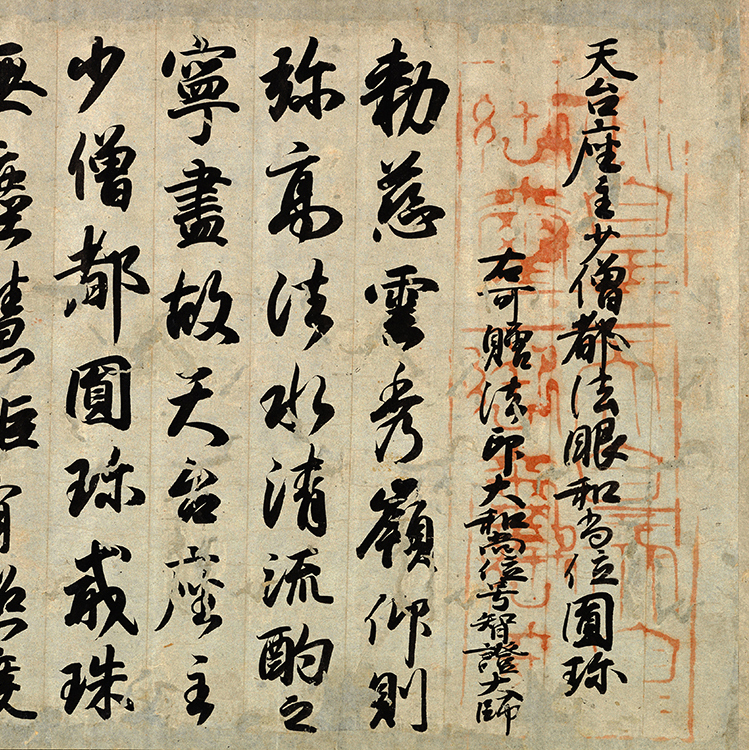 天台座主少僧都法眼和尚位圓珎
右可贈法印大和尚位号智證大師
勅慈雲秀嶺仰則
弥高法水清流酌之
寧盡故天台座主
少僧都圓珎戒珠
無塵慧炬